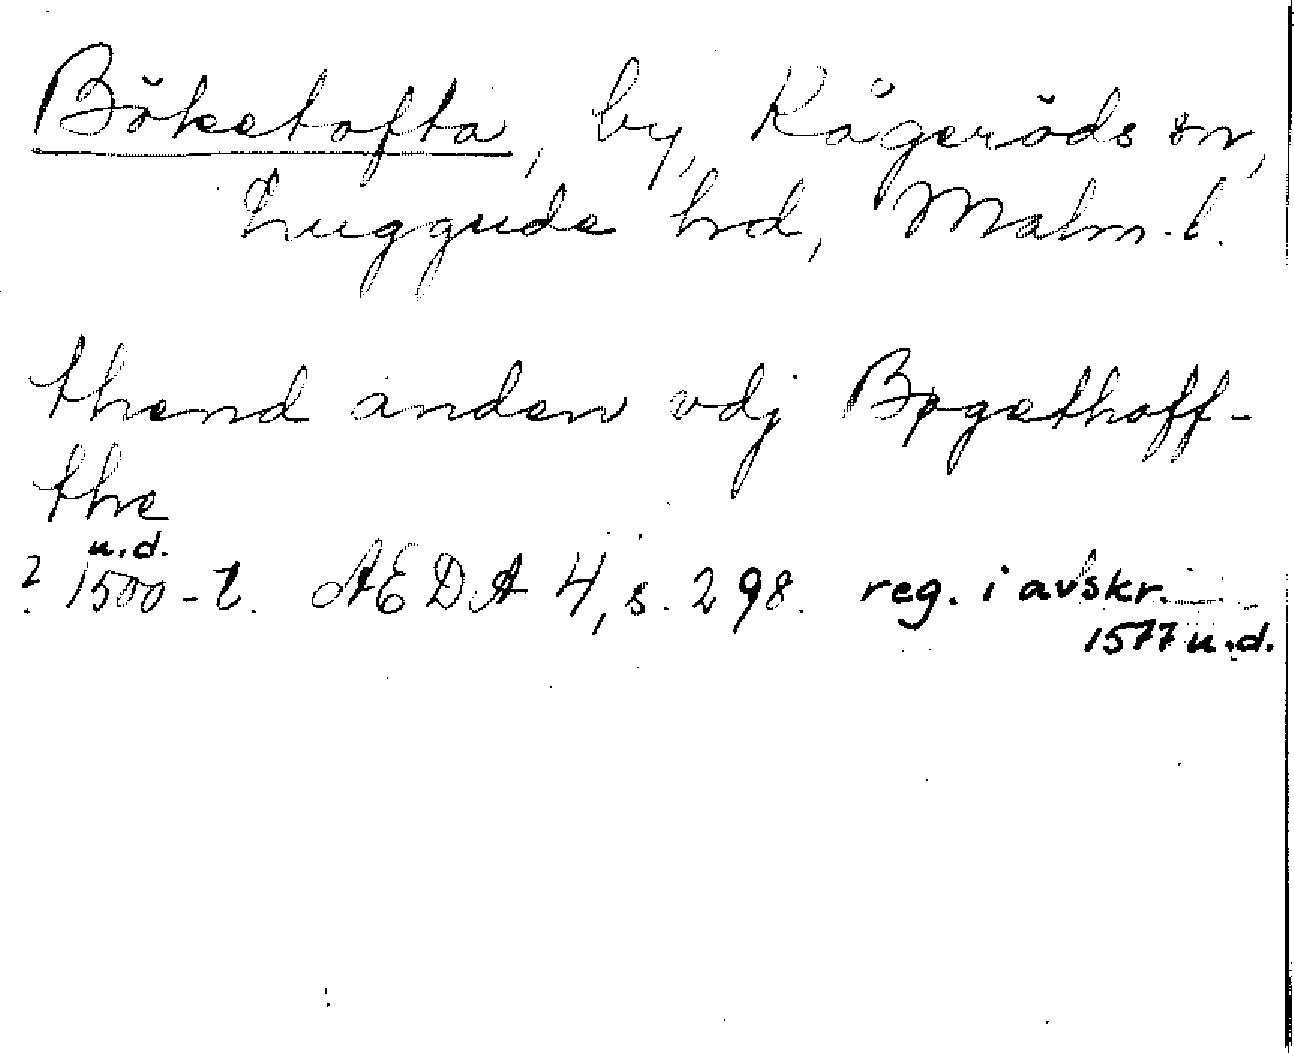 Böketofta, by, Kågeröds sn,
Luggude hrd, Malm. l.
thend anden vdj Bøgethoff-
the
u.d.
? 1500-t. AEDA 4, s. 298. reg. i avskr.
1577 u.d.